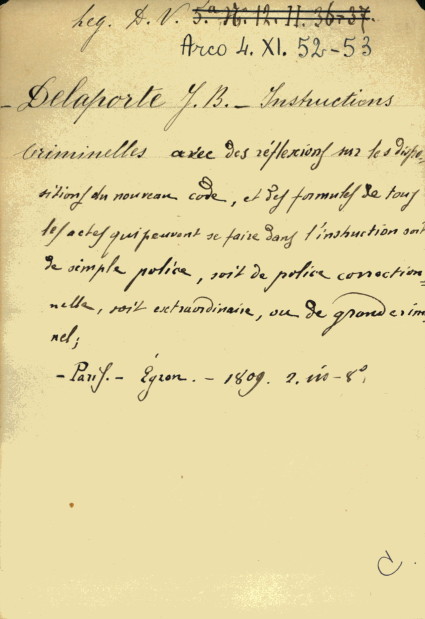 Leg. D. V. 5.a 16. 12. II. 36-37.
Arco 4. XI. 52-53
- Delaporte J. B. - Instructions
Criminelles avec des réflexions sur les dispo-
sitions du nouveau code, et des formules de tous
les actes qui peuvent se faire dans l'instruction soit
de simple police, soit de police correction-
nelle, soit extraordinaire, ou de grand crim-
nel;
- Paris. - Égron. - 1809. 2. in-8º.
C.